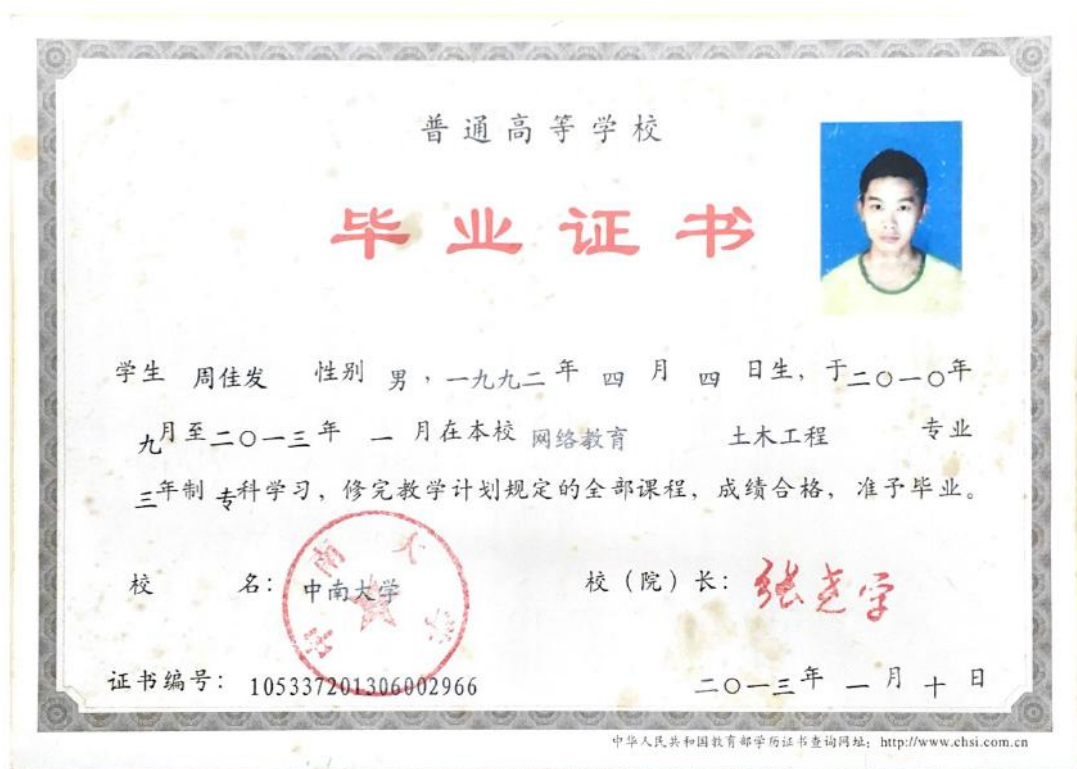 普通高等学校
毕业证书
学生 周佳发 性别 男，一九九二年 四 月 四 日生，于二〇一〇年
九月至二〇一三年 一 月在本校 网络教育 土木工程 专业
三年制 专科学习，修完教学计划规定的全部课程，成绩合格，准予毕业。
校 名：中南大学 校（院）长：张尧学
中南大学
证书编号：105337201306002966 二〇一三年 一 月 十 日
中华人民共和国教育部学历证书查询网址：http://www.chsi.com.cn